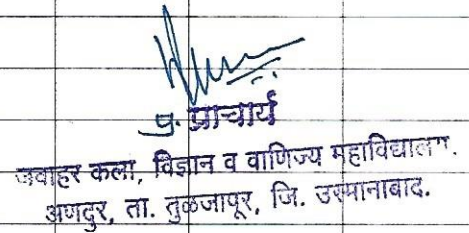 प्र. प्राचार्य
जवाहर कला, विज्ञान व वाणिज्य महाविद्यालय.
अणदुर, ता. तुळजापूर, जि. उस्मानाबाद.